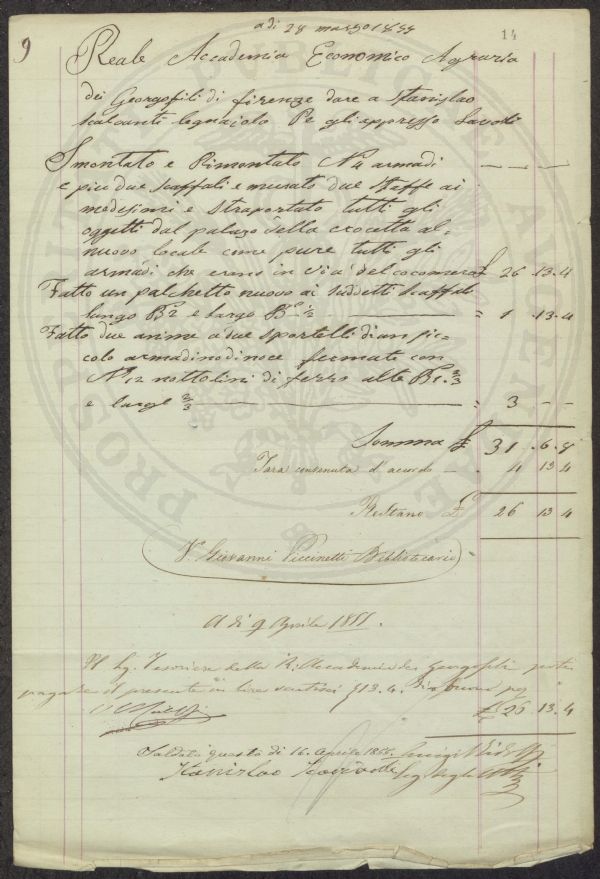 9
a di 28 marzo 1855
14
Reale Accademia Economico Agraria
dei Georgofili di firenze dare a Stanislao
legnajolo Pe gli appresso Lavori
Smontato e Rimontato N 4 armadi
e piu due Scaffali e murato due Staffe ai
medesimi e Straportato tutti gli
oggetti dal palazo della crocetta al
nuovo locale come pure tutti gli
armadi che erano in via del cocomero £ 26 . 13 . 4
Fatto un palchetto nuovo ai Suddetti Scaffali
lungo B 2 e largo B ½ = 1 . 13 . 4
Fatto due anime a due Sportelli di un pic=
colo armadino di noce fermate con
N 12 nottolini di ferro alte B 1. 2/3
e large 2/3 = 3 - -
Somma £ 31 . 6 . 8
Tara convenuta d'acordo - . 4 13 4
Restano £ 26 13 4
V. Giovanni Piccinetti Bibliotecario
A di 9 Aprile 1855.
Il Sig. Tesoriere della R. Accademia dei Georgofili
pagare il presente in lire ventisei 13. 4.
£ 26 . 13 . 4
Saldato questo di 16. Aprile 1855. Luigi Ridolfi
Stanislao
PROSPERITATI PUBLICAE AUGENDAE